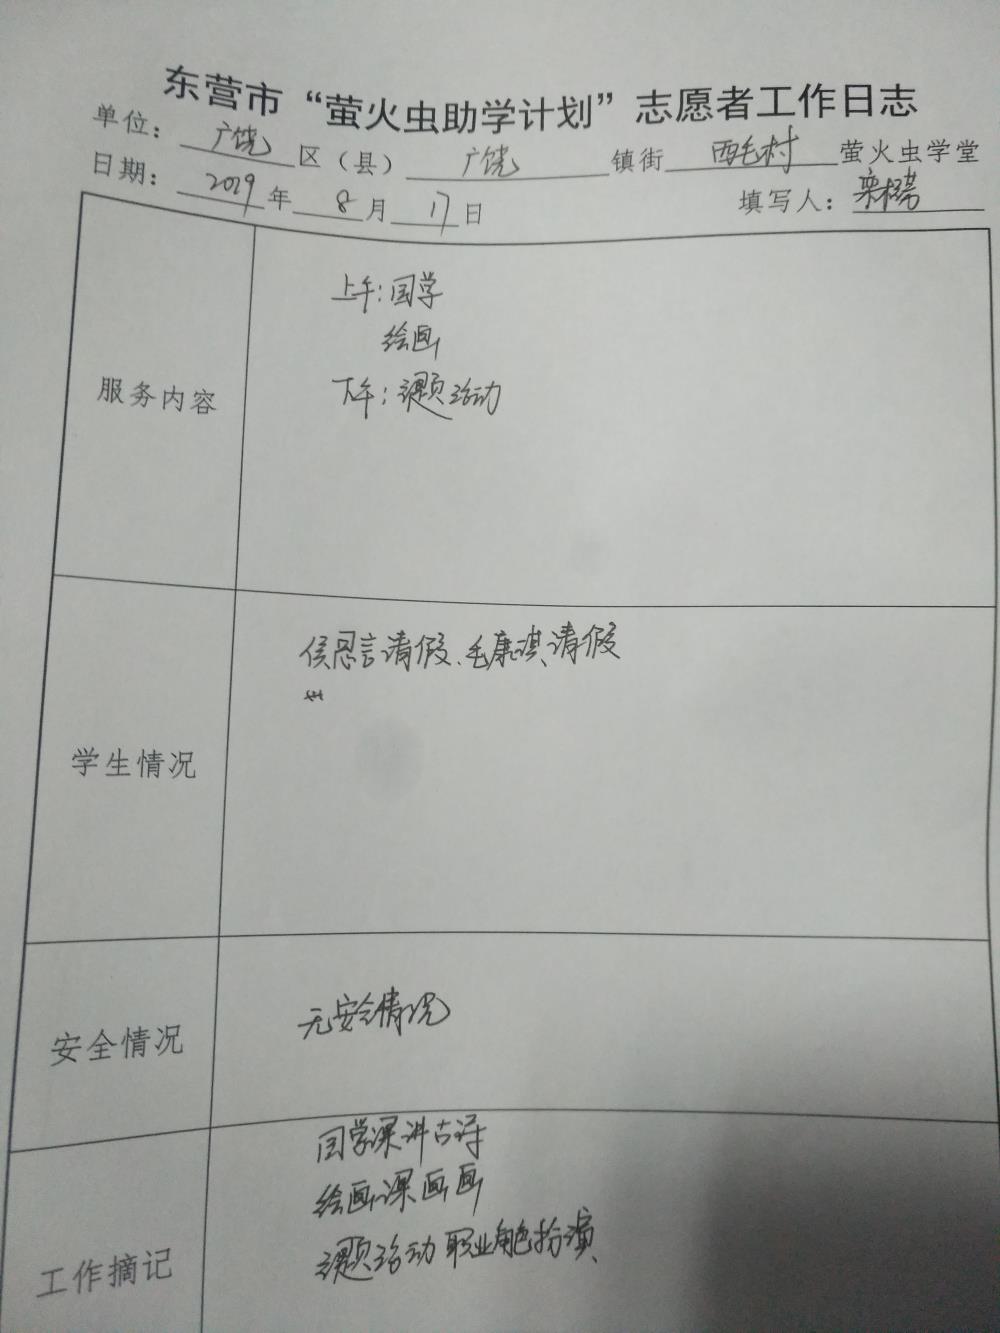 东营市“萤火虫助学计划”志愿者工作日志
单位：广饶区（县）广饶镇街西毛村萤火虫学堂
日期：2019年8月17日 填写人：栾
服务内容
上午：国学
绘画
下午：课题活动
学生情况
侯恩言请假、毛康淇请假
安全情况
无安全情况
工作摘记
国学课讲古诗
绘画课画画
课题活动职业角色扮演